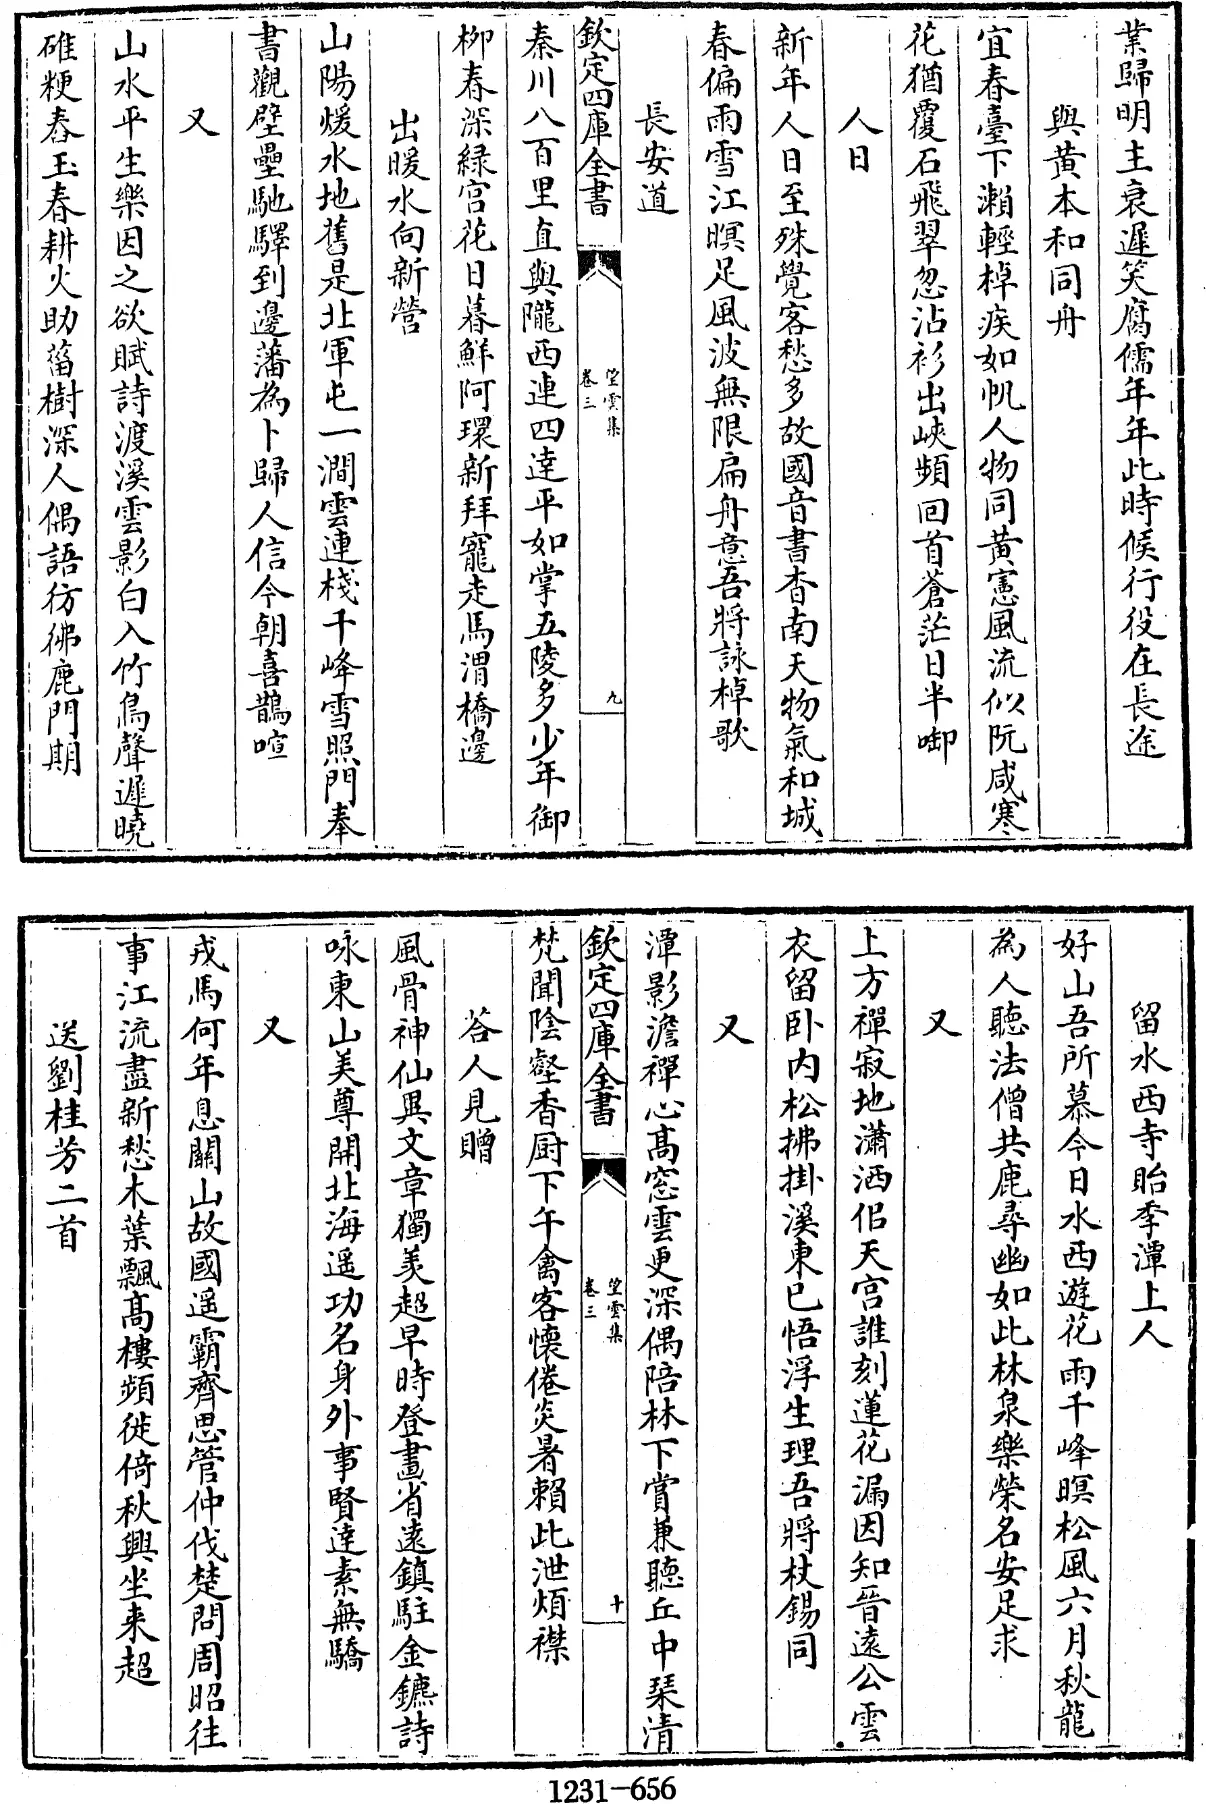 業歸明主衰遲笑腐儒年年此時候行役在長途
與黄本和同舟
宜春臺下瀨輕棹疾如帆人物同黄憲風流似阮咸寒
花猶覆石飛翠忽沾衫出峽頻回首蒼茫日半啣
人日
新年人日至殊覺客愁多故國音書杳南天物氣和城
春偏雨雪江暝足風波無限扁舟意吾將詠棹歌
長安道
欽定四庫全書
望雲集
卷三
九
秦川八百里直與隴西連四達平如掌五陵多少年御
栁春深緑宫花日暮鮮阿環新拜寵走馬渭橋邊
出暖水向新營
山陽煖水地舊是北軍屯一澗雲連棧千峰雪照門奉
書觀壁壘馳驛到邊藩為卜歸人信今朝喜鵲喧
又
山水平生樂因之欲賦詩渡溪雲影白入竹鳥聲遲曉
碓粳舂玉春耕火助菑樹深人偶語彷彿鹿門期
留水西寺貽季潭上人
好山吾所慕今日水西遊花雨千峰暝松風六月秋龍
為人聽法僧共鹿尋幽如此林泉樂榮名安足求
又
上方禪寂地瀟洒佀天宫誰刻蓮花漏因知晉遠公雲
衣留卧内松拂掛溪東已悟浮生理吾將杖錫同
又
潭影澹禪心髙窓雲更深偶陪林下賞兼聽丘中琹清
欽定四庫全書
望雲集
卷三
十
梵聞陰壑香厨下午禽客懷倦炎暑賴此泄煩襟
荅人見贈
風骨神仙異文章獨羙超早時登畫省遠鎮駐金鑣詩
咏東山美尊開北海遥功名身外事賢達素無驕
又
戎馬何年息闗山故國遥霸齊思管仲伐楚問周昭往
事江流盡新愁木葉飄髙樓頻徙倚秋興坐来超
送劉桂芳二首
1231-656